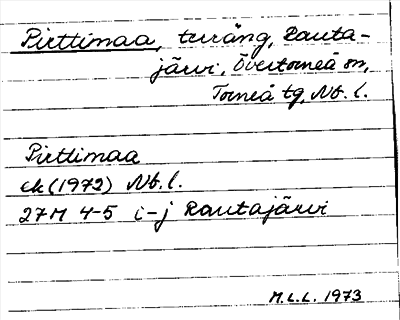 Pirttimaa, teräng, Rauta-
järvi, Övertorneå sn,
Torneå tg, Nb. l.
Pirttimaa
ek (1972) Nb. l.
27M 4-5 i-j Rautajärvi
M.L.L. 1973